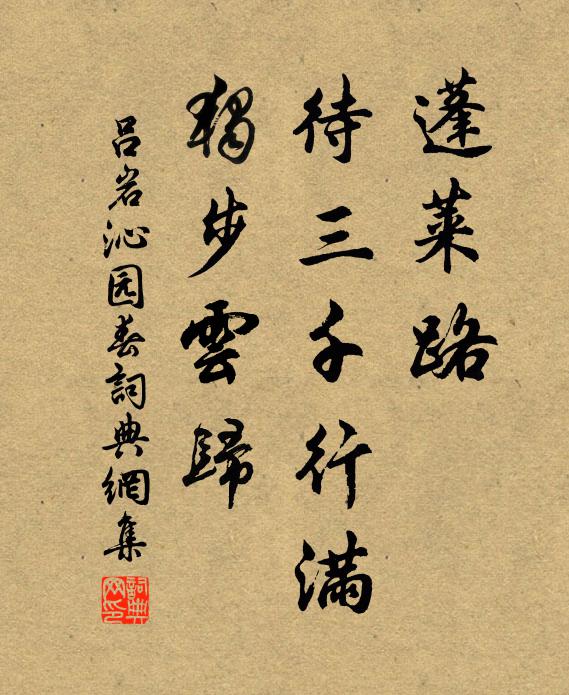 蓬莱路
待三千行满
獨步雲歸
吕岩沁园春詞典網集
詞典网印